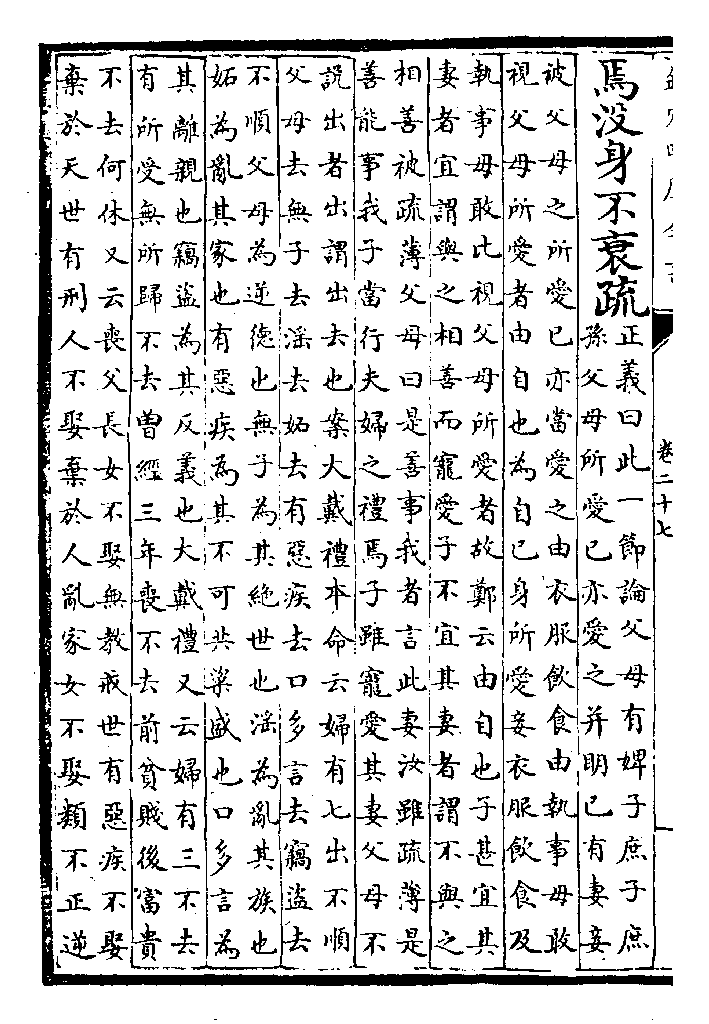 卷二十七
焉没身不衰疏
正義曰此一節論父母有婢子庶子庶
孫父母所愛已亦愛之并明已有妻妾
被父母之所愛已亦當愛之由衣服飲食由執事毋敢
視父母所愛者由自也為自已身所愛妾衣服飲食及
執事毋敢比視父母所愛者故鄭云由自也子甚宜其
妻者宜謂與之相善而寵愛子不宜其妻者謂不與之
相善被疏薄父母曰是善事我者言此妻汝雖疏薄是
善能事我子當行夫婦之禮焉子雖寵愛其妻父母不
説出者出謂出去也案大戴禮本命云婦有七出不順
父母去無子去淫去妬去有惡疾去口多言去竊盗去
不順父母為逆德也無子為其絶世也淫為亂其族也
妬為亂其家也有惡疾為其不可共粢盛也口多言為
其離親也竊盗為其反義也大戴禮又云婦有三不去
有所受無所歸不去曽經三年喪不去前貧賤後富貴
不去何休又云喪父長女不娶無教戒世有惡疾不娶
棄於天世有刑人不娶棄於人亂家女不娶類不正逆